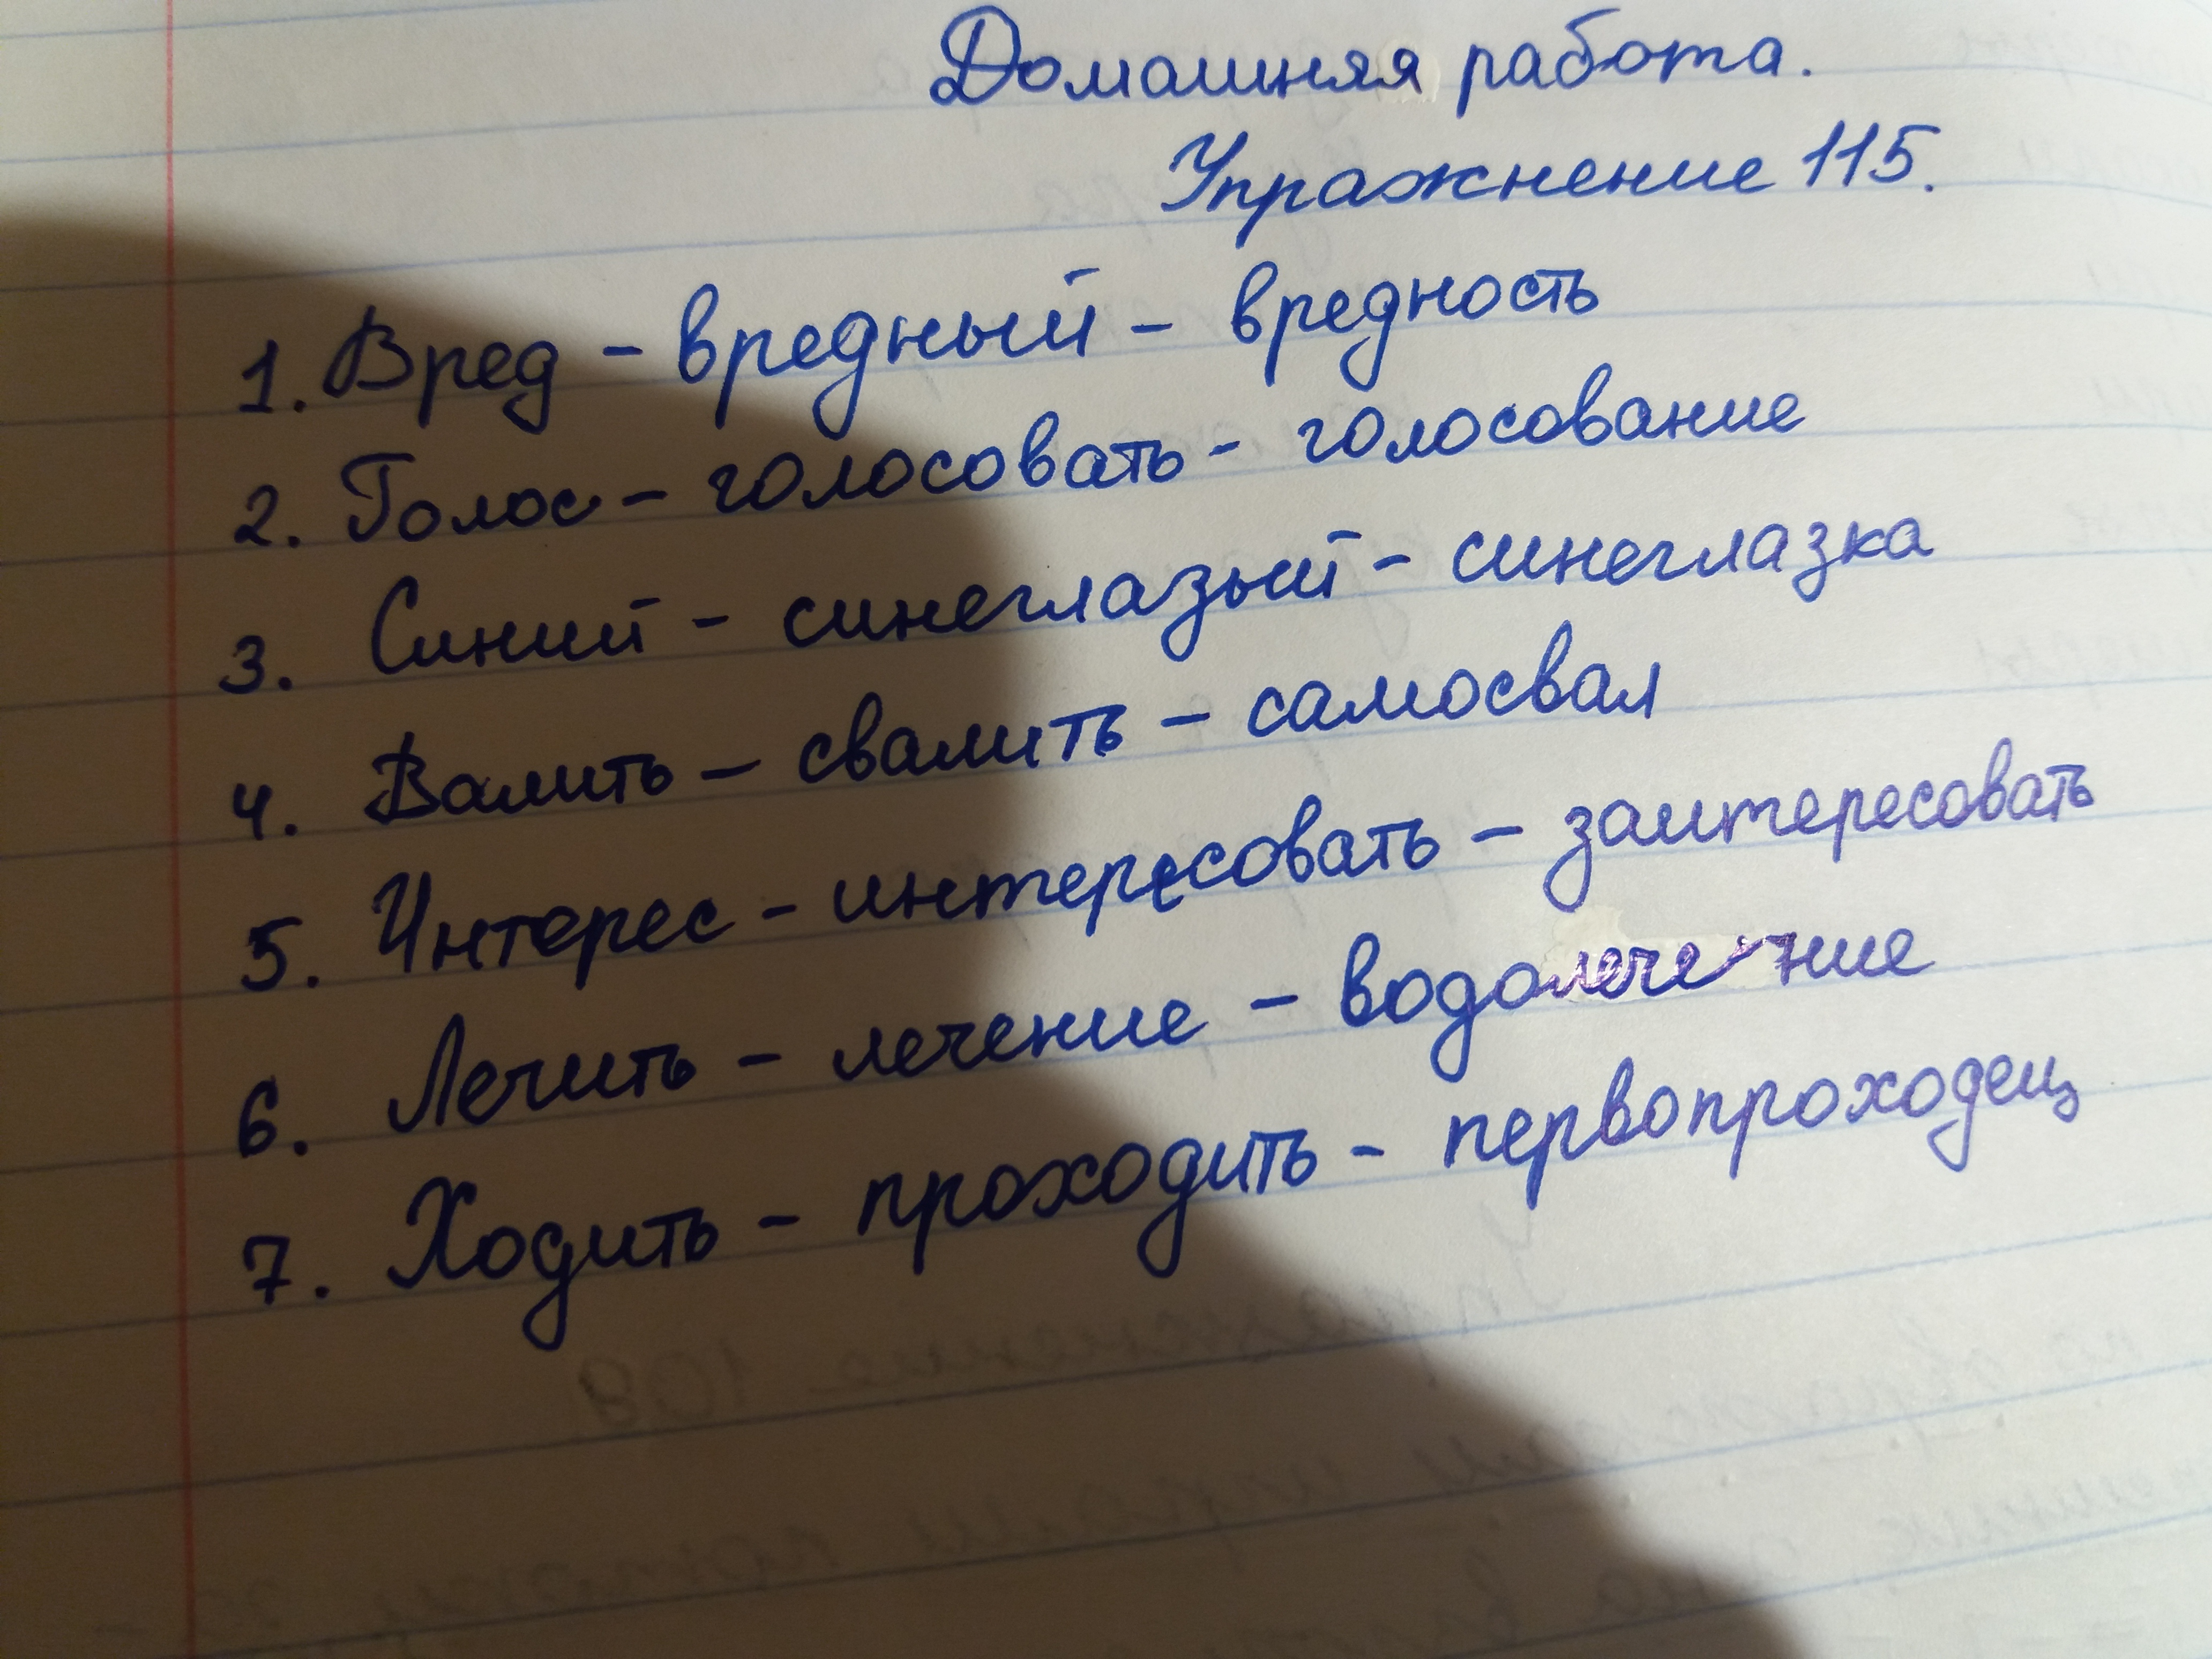 Домашняя работа.
Упражнение 115.
1. Вред – вредный – вредность
2. Голос – голосовать - голосование
3. Синий – синеглазый – синеглазка
4. Валить – свалить – самосвал
5. Интерес – интересовать – заинтересовать
6. Лечить – лечение – водолечение
7. Ходить – проходить – первопроходец